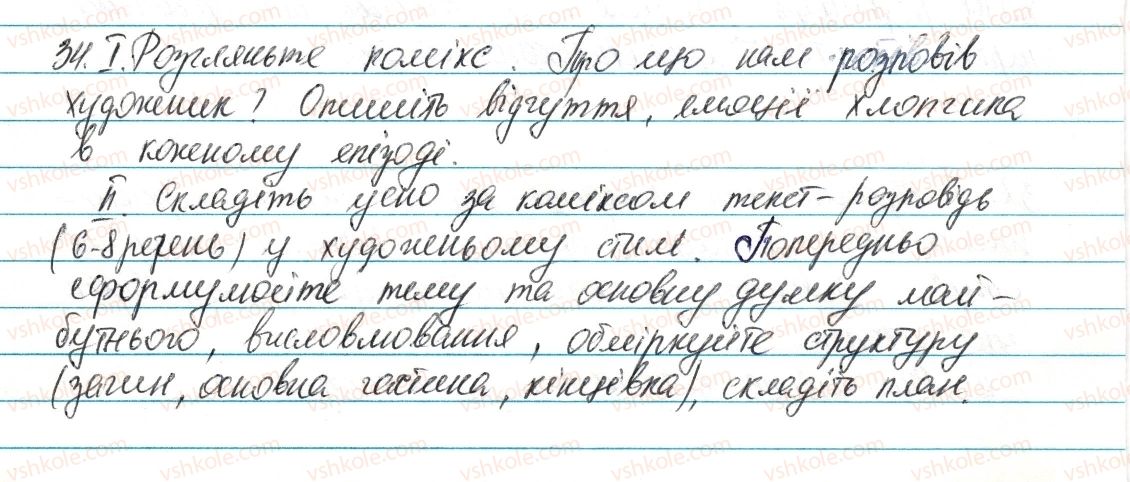 34. I. Розгляньте комікс. Про що нам розповів
художник? Опишіть відчуття, емоції хлопчика
в кожному епізоді.
II. Складіть усно за коміксом текст-розповідь
(6-8 речень) у художньому стилі. Попередньо
сформулюйте тему та основну думку май-
бутнього, висловлювання, обміркуйте структуру
(зачин, основна частина, кінцівка), складіть план.